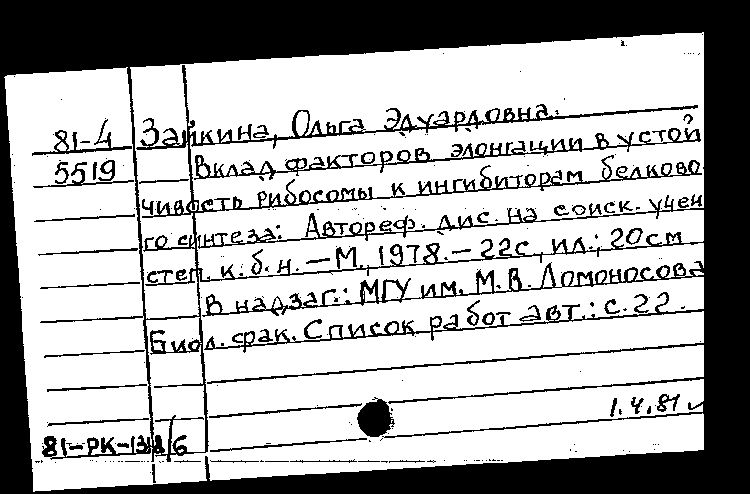 81-4 Зайкина, Ольга Эдуардовна.
5519 Вклад факторов элонгации в устой
чивость рибосомы к ингибиторам белково
го синтеза: Автореф. дис. на соиск. учен
степ. к.б.н. — М., 1978. — 22с, ил.; 20см
В надзаг.: МГУ им. М.В. Ломоносова
Биол. фак. Список работ авт.: с.22.
1.4.81